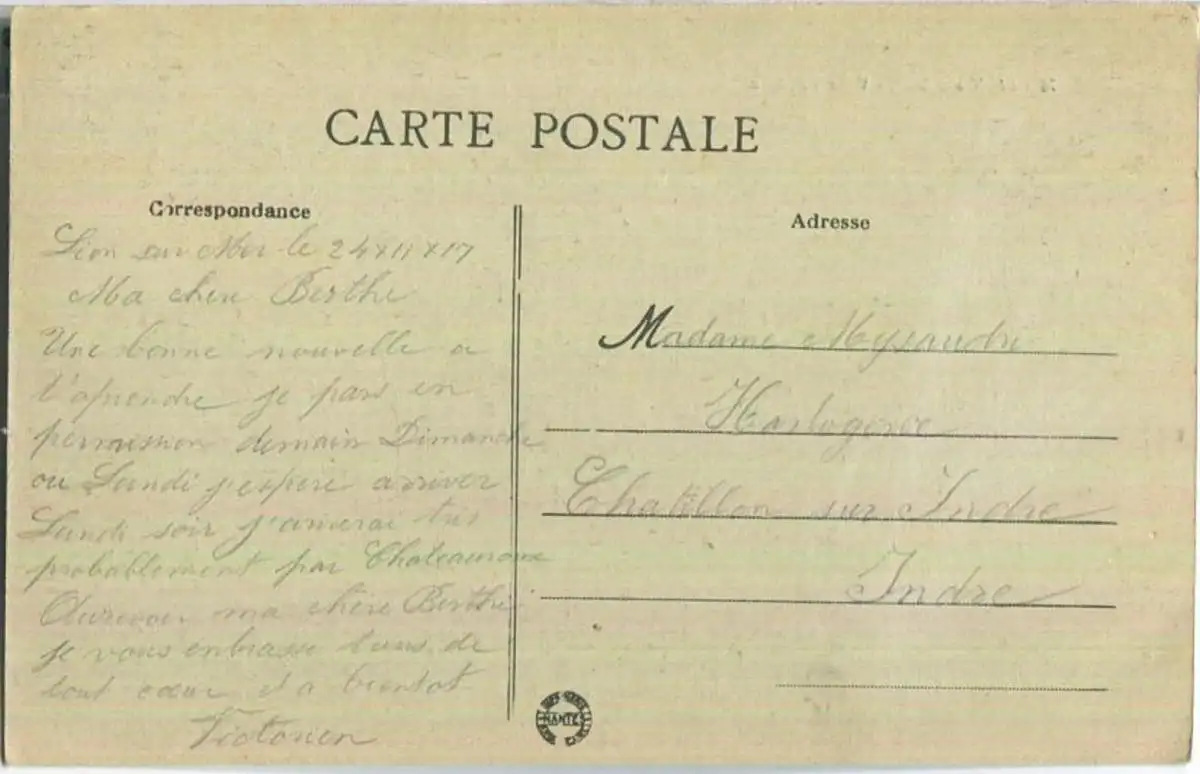 CARTE POSTALE
Correspondance
Lion sur Mer le 24 x 11 x 17
Ma chère Berthe
Une bonne nouvelle a
t'aprendre je pars en
permission demain Dimanche
ou Lundi j'espère arriver
Lundi soir j'arriverai très
probablement par Chateauroux
Aurevoir ma chère Berthe
je vous enbrasse tous de
tout cœur et a bientot
Victorien
Adresse
Madame
Horlogerie
Chatillon sur Indre
Indre
NANTES